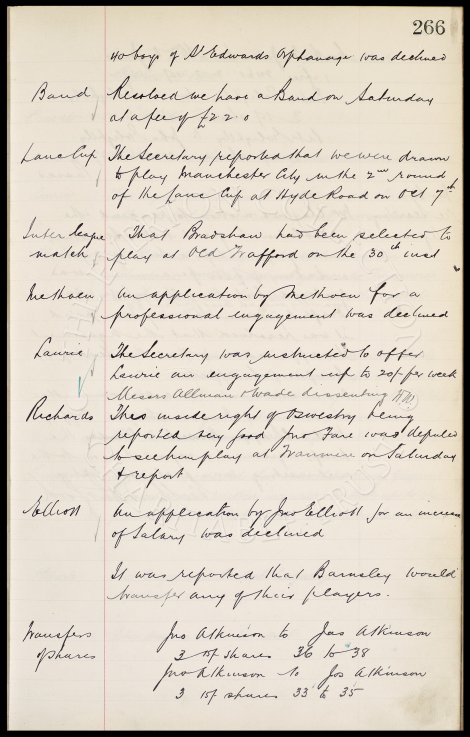 266
40 boys of St Edwards Orphanage was declined
Band Resolved we have a Band on Saturday
at a fee of £2.2.0
Lancs Cup The Secretary reported that we were drawn
to play Manchester City in the 2nd round
of the Lancs Cup at Hyde Road on Oct 7th
Inter league That Bradshaw had been selected to
match play at Old Trafford on the 30th inst
Methven An application by Methven for a
professional engagement was declined
Laurie The Secretary was instructed to offer
Laurie an engagement up to 20/- per week
Messrs Allman & Wade dissenting
Richards This inside right of Oswestry being
reported very good Jno Fare was deputed
to see him play at Tranmere on Saturday
& report
Elliott An application by Jno Elliott for an increase
of Salary was declined
It was reported that Barnsley would
transfer any of their players.
Transfers Jno Atkinson to Jas Atkinson
of shares 3 15/- shares 36 to 38
Jno Atkinson to Jos Atkinson
3 15/- shares 33 to 35